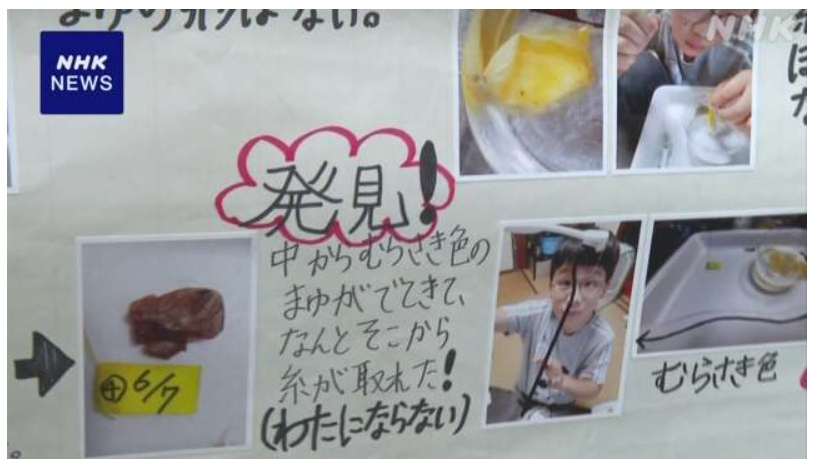 まゆの形はない。
NHK
NEWS
NHK
発見!
中からむらさき色の
まゆがでてきて、
なんとそこから
糸が取れた!
(わたにならない)
④6/7
むらさき色